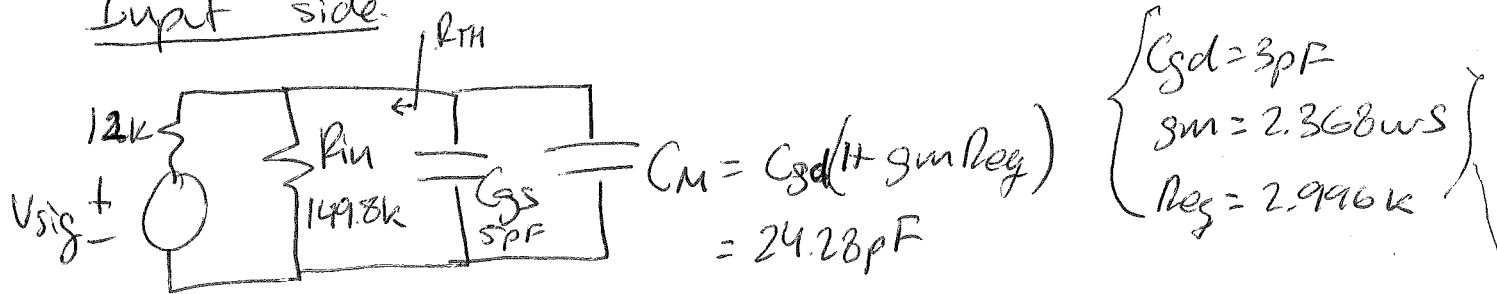 Input side.
RTH
12k
Vsig
+
-
Rin
149.8k
Cgs
5pF
CM = Cgd(1+ gmReq)
= 24.28pF
Cgd = 3pF
gm = 2.368mS
Req = 2.996k